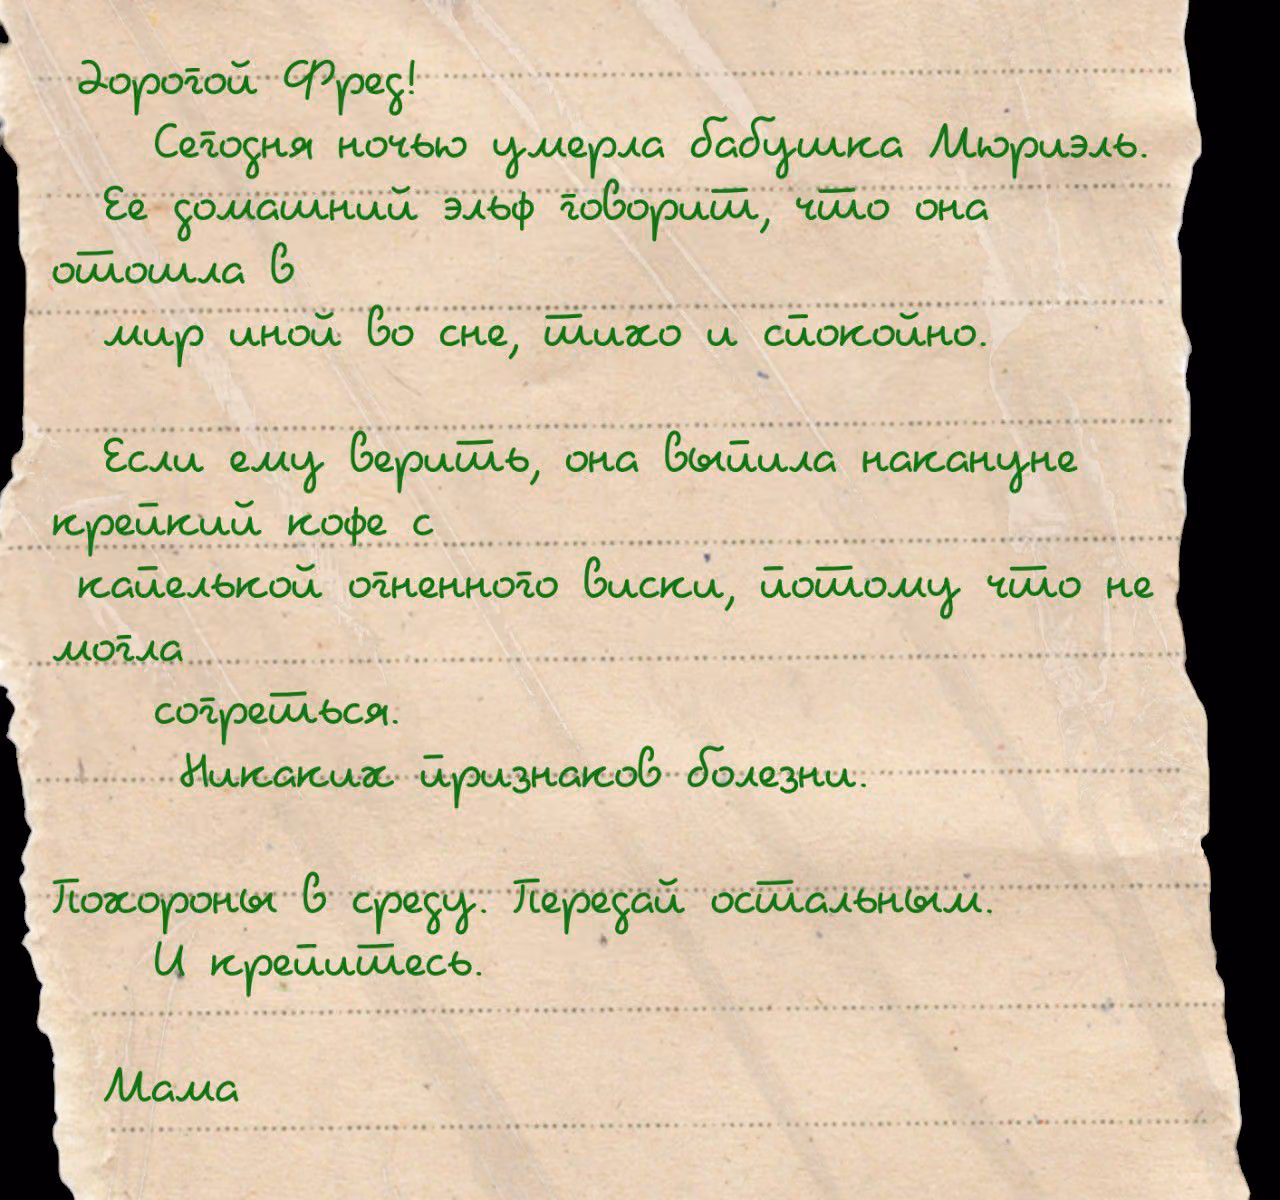 Дорогой Фред!
Сегодня ночью умерла бабушка Мюриэль.
Ее домашний эльф говорит, что она
отошла в
мир иной во сне, тихо и спокойно.
Если ему верить, она выпила накануне
крепкий кофе с
капелькой огненного виски, потому что не
могла
согреться.
Никаких признаков болезни.
Похороны в среду. Передай остальным.
И крепитесь.
Мама